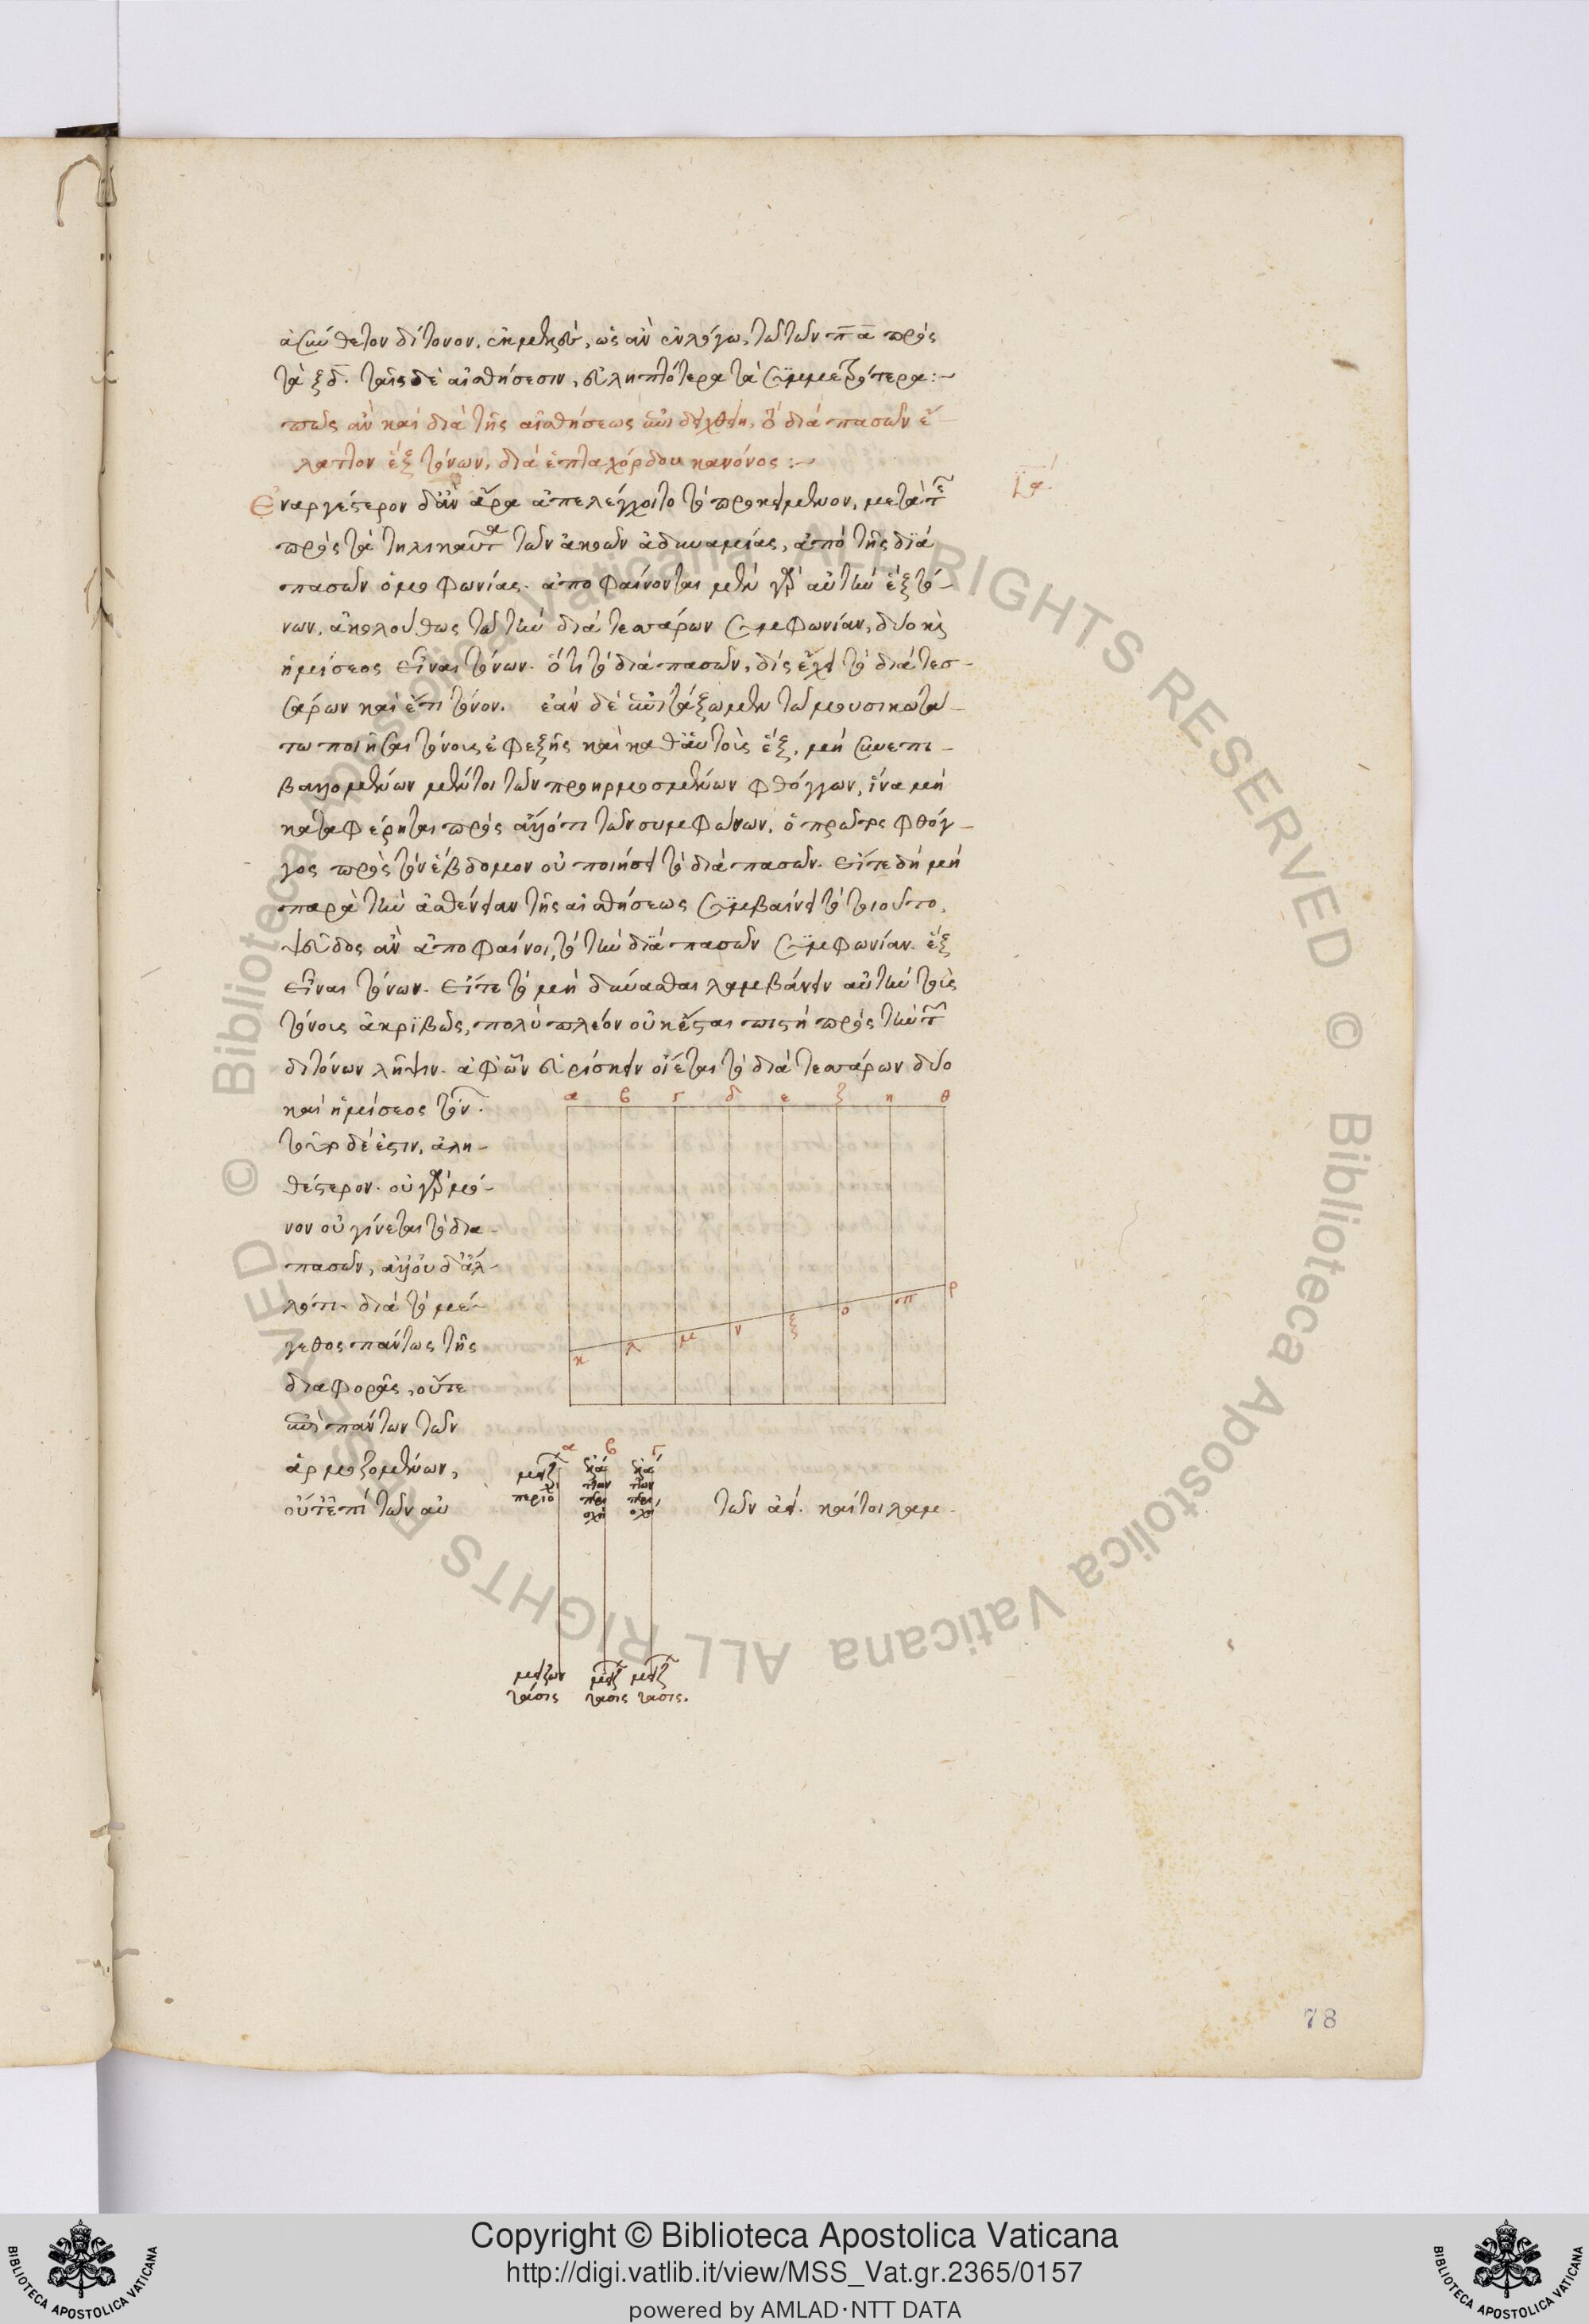 ἀσύνθετον δίτονον. ἐκμελὴς οὖν, ὡς ἂν ἐν λόγω, τῶ τῶν π̅α̅ πρὸς
τὰ ξ̅δ̅. ταῖς δὲ αἰσθήσεσιν, εὐληπτότερα τὰ συμμετρότερα:~
πῶς ἂν καὶ διὰ τῆς αἰσθήσεως δειχθείη, τὸ διὰ πασῶν ἔ-
λαττον ἓξ τόνων, διὰ ἑπταχόρδου κανόνος :~
ια.
Ἐναργέστερον δ' ἂν ἄρα ἀπελέγχοιτο τὸ προκείμενον, μετὰ τῆς
πρὸς τὰ τηλικαῦτα τῶν ἀκοῶν ἀδυναμίας, ἀπὸ τῆς διὰ
πασῶν ὁμοφωνίας. ἀποφαίνονται μὲν γὰρ αὐτὴν ἓξ τό-
νων, ἀκολούθως τῶ τὴν διὰ τεσσάρων συμφωνίαν, δύο καὶ
ἡμίσεος εἶναι τόνων. ὅτι τὸ διὰ πασῶν, δὶς ἔχει τὸ διὰ τεσ-
σάρων καὶ ἔτι τόνον. ἐὰν δὲ ἐπιτάξωμεν τῶ μουσικωτά-
τω ποιῆσαι τόνους ἐφεξῆς καὶ καθ' αὑτοὺς ἓξ, μὴ συνεπι-
βαλλομένων μέντοι τῶν προηρμοσμένων φθόγγων, ἵνα μὴ
καταφέρηται πρὸς ἄλλό τι τῶν συμφώνων, ὁ πρῶτος φθόγ-
γος πρὸς τὸν ἕβδομον οὐ ποιήσει τὸ διὰ πασῶν. εἴτε δὴ μὴ
παρὰ τὴν ἀσθένειαν τῆς αἰσθήσεως συμβαίνει τὸ τοιοῦτο,
ψεῦδος ἂν ἀποφαίνοι, τὸ τὴν διὰ πασῶν συμφωνίαν. ἓξ
εἶναι τόνων. εἴτε τὸ μὴ δύνασθαι λαμβάνειν αὐτὴν τοὺς
τόνους ἀκριβῶς, πολὺ πλέον οὐκ ἔσται πιστὴ πρὸς τὴν τῶν
διτόνων λῆψιν. ἀφ' ὧν εὑρίσκειν οἴεται τὸ διὰ τεσσάρων δύο
καὶ ἡμίσεος τόνων.
τοῦτο δέ ἐστιν, ἀλη-
θέστερον. οὐ γὰρ μό-
νον οὐ γίνεται τὸ διὰ
πασῶν, ἀλλ' οὐδ' ἄλ-
λό τι. διὰ τὸ μέ-
γεθος πάντως τῆς
διαφορᾶς, οὔτε
ἐπὶ πάντων τῶν
ἁρμοζομένων,
οὔτ' ἐπὶ τῶν αὐ
τῶν ἀεί. καίτοι λαμ-
α β γ δ ε ζ η θ
κ λ μ ν ξ ο π ρ
α β γ
μείζων
μείζων μείζων
τάσις τάσις τάσις.
78
Copyright © Biblioteca Apostolica Vaticana
http://digi.vatlib.it/view/MSS_Vat.gr.2365/0157
powered by AMLAD·NTT DATA
BIBLIOTECA APOSTOLICA VATICANA
BIBLIOTECA APOSTOLICA VATICANA
© Biblioteca Apostolica Vaticana ALL RIGHTS RESERVED © Biblioteca Apostolica Vaticana ALL RIGHTS RESERVED